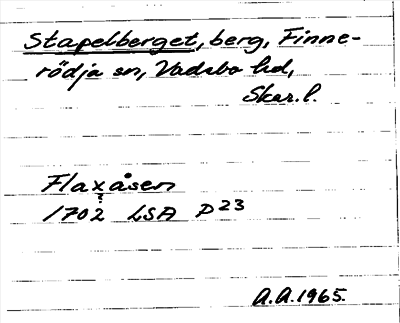 Stapelberget, berg, Finne-
rödja sn, Vadsbo hd,
Skar.l.
Flaxåsen
1702 LSA P23
A.A.1965.